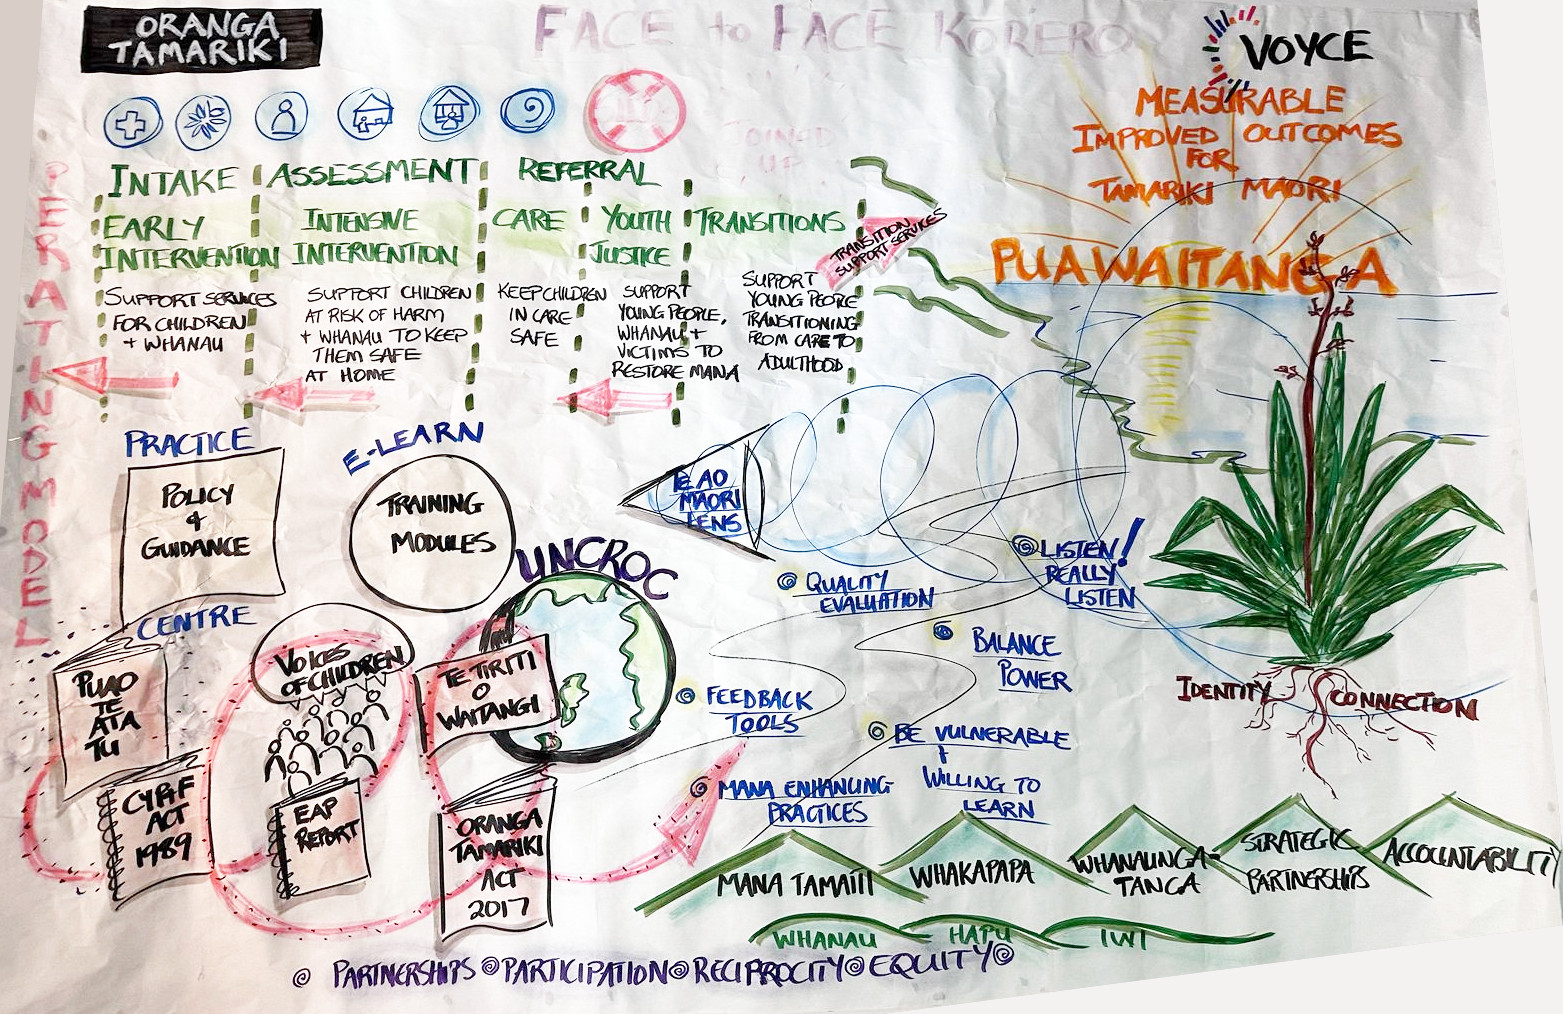 ORANGA
TAMARIKI
FACE to FACE KORERO
VOYCE
MEASURABLE
IMPROVED OUTCOMES
FOR
TAMARIKI MAORI
PUAWAITANGA
JOINED
UP
OPERATING MODEL
INTAKE
ASSESSMENT
REFERRAL
EARLY
INTERVENTION
INTENSIVE
INTERVENTION
CARE
YOUTH
JUSTICE
TRANSITIONS
TRANSITION
SUPPORT SERVICES
SUPPORT SERVICES
FOR CHILDREN
+ WHANAU
SUPPORT CHILDREN
AT RISK OF HARM
+ WHANAU TO KEEP
THEM SAFE
AT HOME
KEEP CHILDREN
IN CARE
SAFE
SUPPORT
YOUNG PEOPLE,
WHANAU +
VICTIMS TO
RESTORE MANA
SUPPORT
YOUNG PEOPLE
TRANSITIONING
FROM CARE TO
ADULTHOOD
PRACTICE
POLICY
+
GUIDANCE
CENTRE
E-LEARN
TRAINING
MODULES
UNCROC
TE AO
MAORI
LENS
LISTEN!
REALLY
LISTEN
QUALITY
EVALUATION
BALANCE
POWER
FEEDBACK
TOOLS
BE VULNERABLE
+
WILLING TO
LEARN
MANA ENHANCING
PRACTICES
IDENTITY
CONNECTION
PUAO
TE
ATA
TU
CYPF
ACT
1989
VOICES
OF CHILDREN
EAP
REPORT
TE TIRITI
O
WAITANGI
ORANGA
TAMARIKI
ACT
2017
MANA TAMAITI
WHAKAPAPA
WHANAUNGA-
TANGA
STRATEGIC
PARTNERSHIPS
ACCOUNTABILITY
WHANAU
HAPU
IWI
PARTNERSHIPS PARTICIPATION RECIPROCITY EQUITY